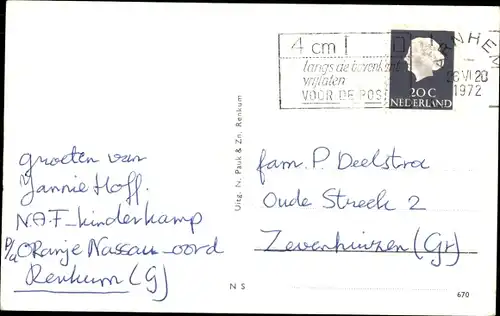 4 cm
langs de bovenkant
vrijlaten
VOOR DE POST
ARNHEM
28 VI 20
1972
20 C
NEDERLAND
Groeten van
Jannie Hoff.
N.A.F-kinderkamp
P/a Oranje Nassau-oord
Renkum (G)
Uitg. N. Pauk & Zn. Renkum
fam. P. Deelstra
Oude Streek 2
Zevenhuizen (Gr)
N S
670